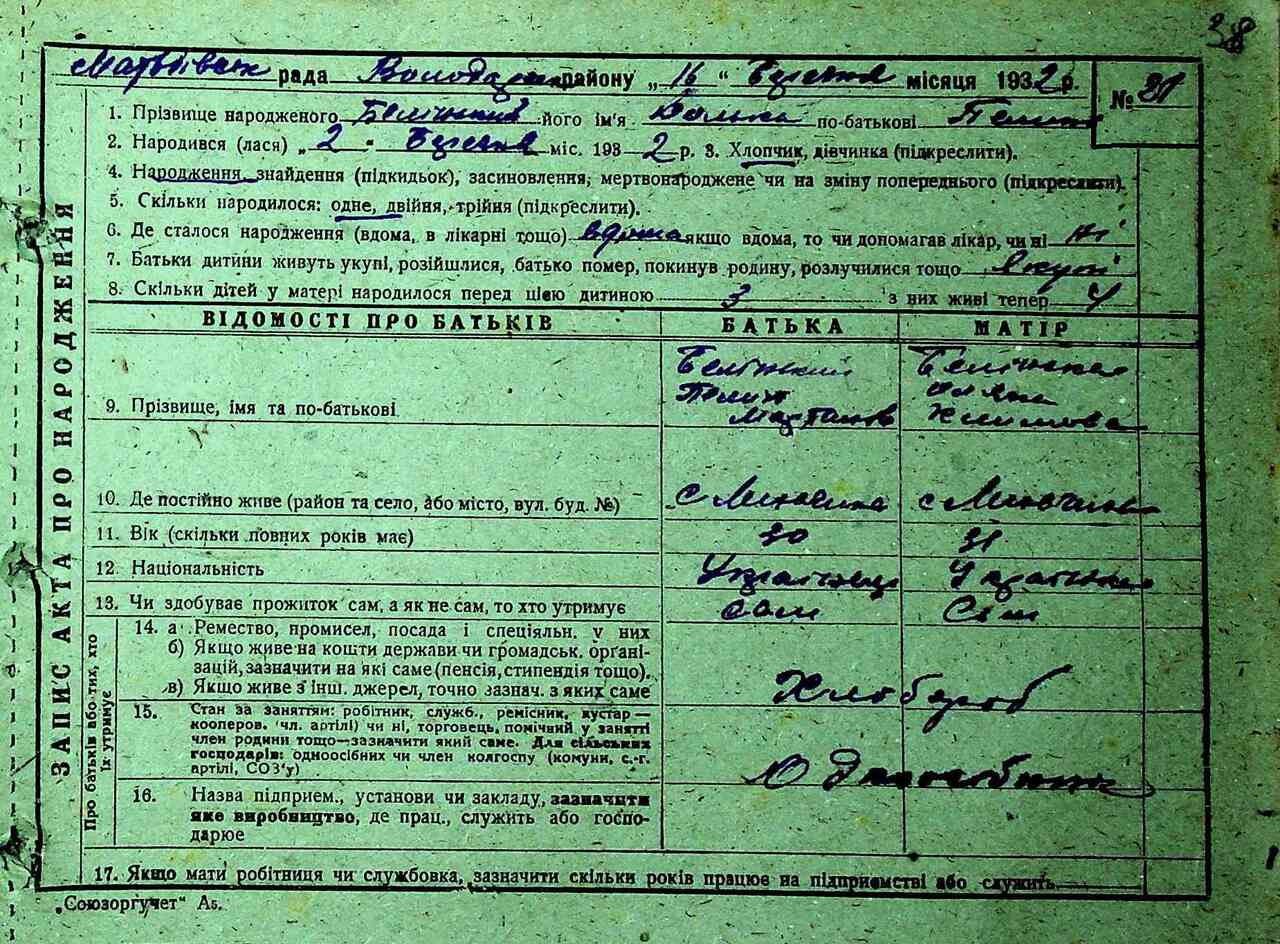 38
рада району „ 16 " Березня місяця 1932 р. №
1. Прізвище народженого його ім'я по-батькові
2. Народився (лася) „ 2 " Березня міс. 193 2 р. 3. Хлопчик, дівчинка (підкреслити).
4. Народження, знайдення (підкидьок), засиновлення, мертвонароджене чи на зміну попереднього (підкреслити).
5. Скільки народилося: одне, двійня, трійня (підкреслити).
6. Де сталося народження (вдома, в лікарні тощо) вдома якщо вдома, то чи допомагав лікар, чи ні ні
7. Батьки дитини живуть укупі, розійшлися, батько помер, покинув родину, розлучилися тощо Вкупі
8. Скільки дітей у матері народилося перед цією дитиною 3 з них живі тепер 4
ВІДОМОСТІ ПРО БАТЬКІВ БАТЬКА МАТІР
9. Прізвище, імя та по-батькові
10. Де постійно живе (район та село, або місто, вул. буд. №) с с
11. Вік (скільки повних років має) 30 31
12 Національність Українець Українка
13. Чи здобуває прожиток сам, а як не сам, то хто утримує сам Сам
14. а Ремество, промисел, посада і спеціяльн. у них
б) Якщо живе на кошти держави чи громадськ. органі-
зацій, зазначити на які саме (пенсія, стипендія тощо).
в) Якщо живе з інш. джерел, точно зазнач. з яких саме
Хлібороб
15. Стан за заняттям: робітник, служб., ремісник, кустар—
кооперов. чл. артілі) чи ні, торговець, помічний у занятті
член родини тощо—зазначити який саме. Для сільських
господарів: одноосібних чи член колгоспу (комуни, с.-г.
артілі, СОЗ'у)
Одноосібник
16. Назва підприєм., установи чи закладу, зазначити
яке виробництво, де прац., служить або госпо-
дарює
17. Якщо мати робітниця чи службовка, зазначити скільки років працює на підприємстві або служить
ЗАПИС АКТА ПРО НАРОДЖЕННЯ
Про батьків або тих, хто
їх утримує
„Союзоргучет" А5.